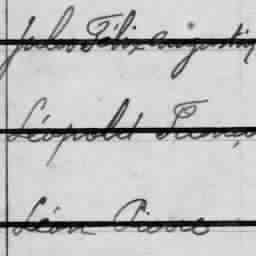 Jules Félix Augustin
Léopold Franç
Léon Pierre